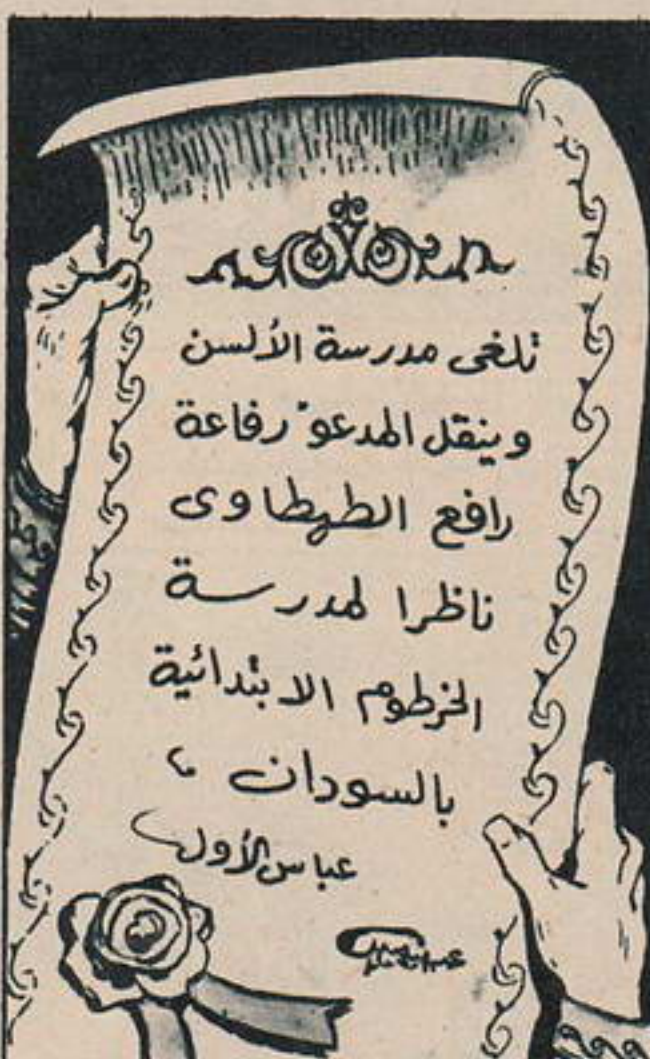 تلغى مدرسة الألسن
وينقل المدعوّ رفاعة
رافع الطهطاوى
ناظرا لمدرسة
الخرطوم الابتدائية
بالسودان ،
عباس الأول